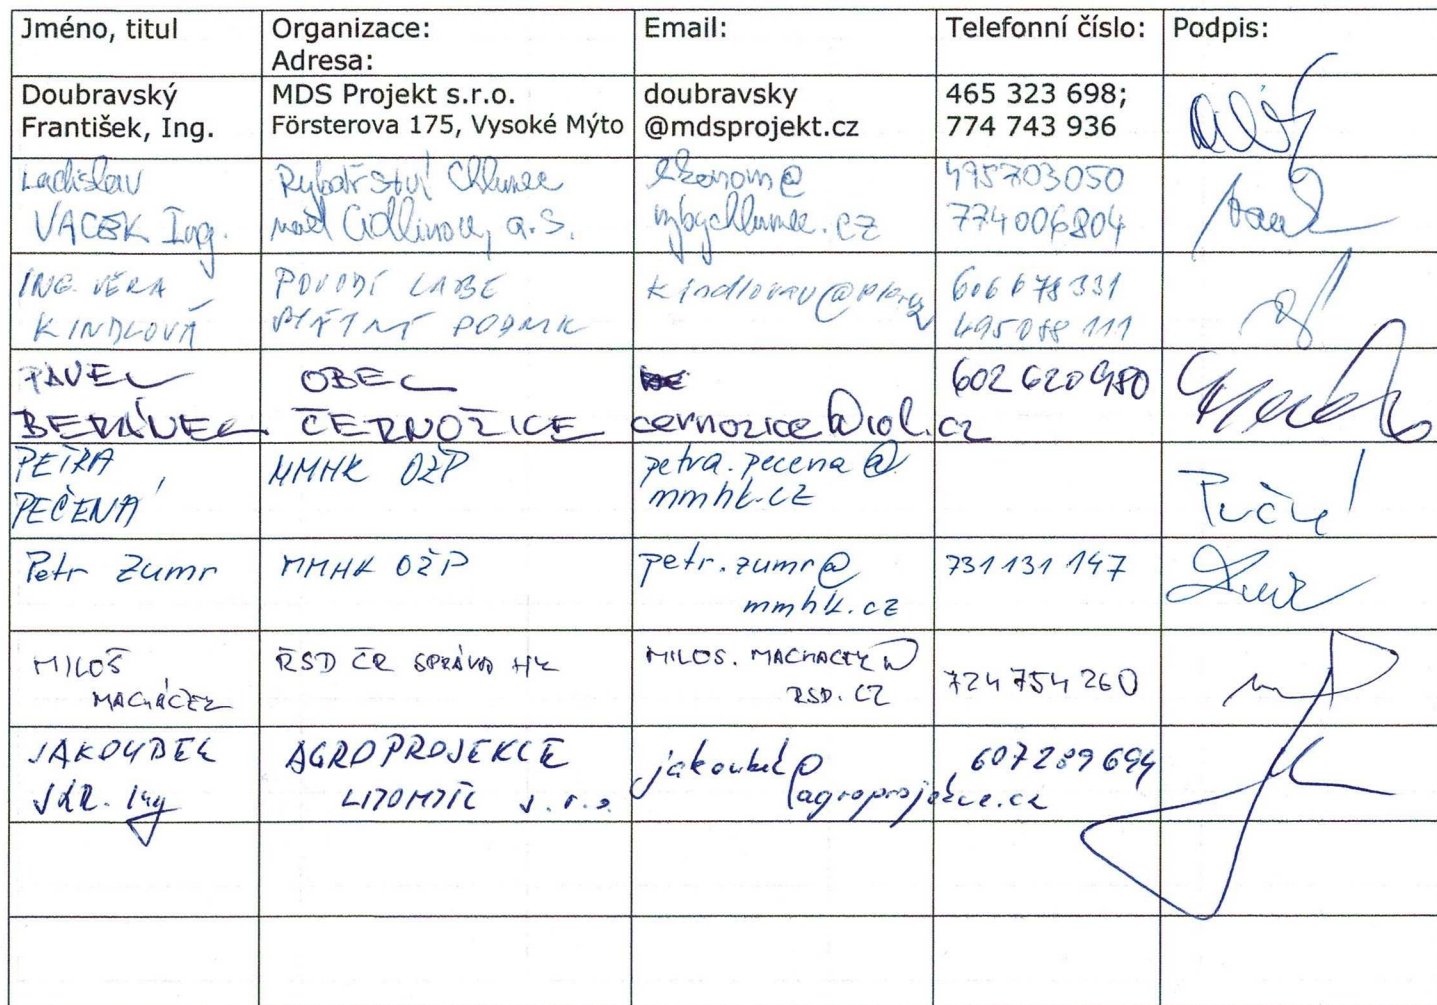 Jméno, titul
Organizace:
Adresa:
Email:
Telefonní číslo:
Podpis:
Doubravský
František, Ing.
MDS Projekt s.r.o.
Försterova 175, Vysoké Mýto
doubravsky
@mdsprojekt.cz
465 323 698;
774 743 936
Ladislav
VACEK Ing.
Rybářství Chlumec
nad Cidlinou, a.s.
ekonom@
rybychlumec.cz
495703050
774006804
ING. VĚRA
KINDLOVÁ
POVODÍ LABE
STÁTNÍ PODNIK
606 678 331
495 088 111
PAVEL
BERÁNEK
OBEC
ČERNOŽICE
cernozice@iol.cz
602 620 980
PETRA
PEČENÁ
MMHK OŽP
petra.pecena@
mmhk.cz
Petr Zumr
MMHK OŽP
petr.zumr@
mmhk.cz
731 131 147
MILOŠ
MACHÁČEK
ŘSD ČR SPRÁVA HK
MILOS.MACHACEK@
RSD.CZ
724 754 260
JAKOUBEK
Ing
AGROPROJEKCE
LITOMYŠL s.r.o.
jakoubek@
agroprojekce.cz
607 289 694